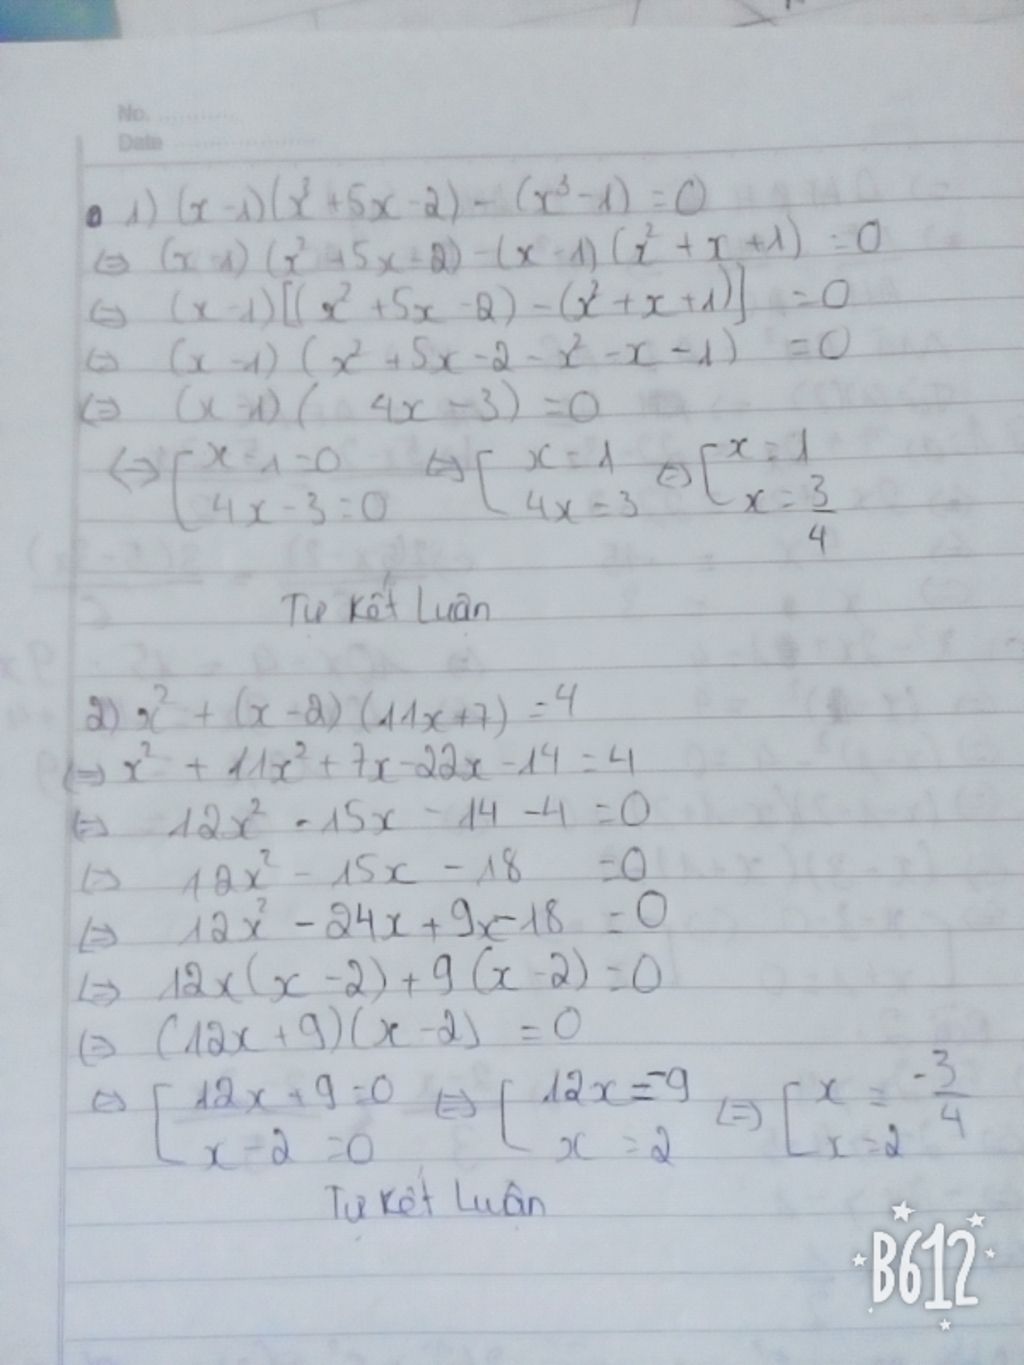 No. ............
Date ..................
1) (x-1)(x³+5x-2) - (x³-1) = 0
⇔ (x-1)(x²+5x-2)-(x-1)(x²+x+1) = 0
⇔ (x-1)[(x²+5x-2)-(x²+x+1)] = 0
⇔ (x-1)(x²+5x-2-x²-x-1) = 0
⇔ (x-1)( 4x-3) = 0
⇔ [x-1=0 ⇔ [x=1 ⇔ [x=1
4x-3=0 4x=3 x=3/4
Tự Kết Luận
2) x²+(x-2)(11x+7) = 4
⇔ x²+11x²+7x-22x-14=4
⇔ 12x²-15x-14-4=0
⇔ 12x²-15x-18 =0
⇔ 12x²-24x+9x-18 =0
⇔ 12x(x-2)+9(x-2)=0
⇔ (12x+9)(x-2) = 0
⇔ [12x+9=0 ⇔ [12x=-9 ⇔ [x=-3/4
x-2=0 x=2 x=2
Tự Kết Luận
B612